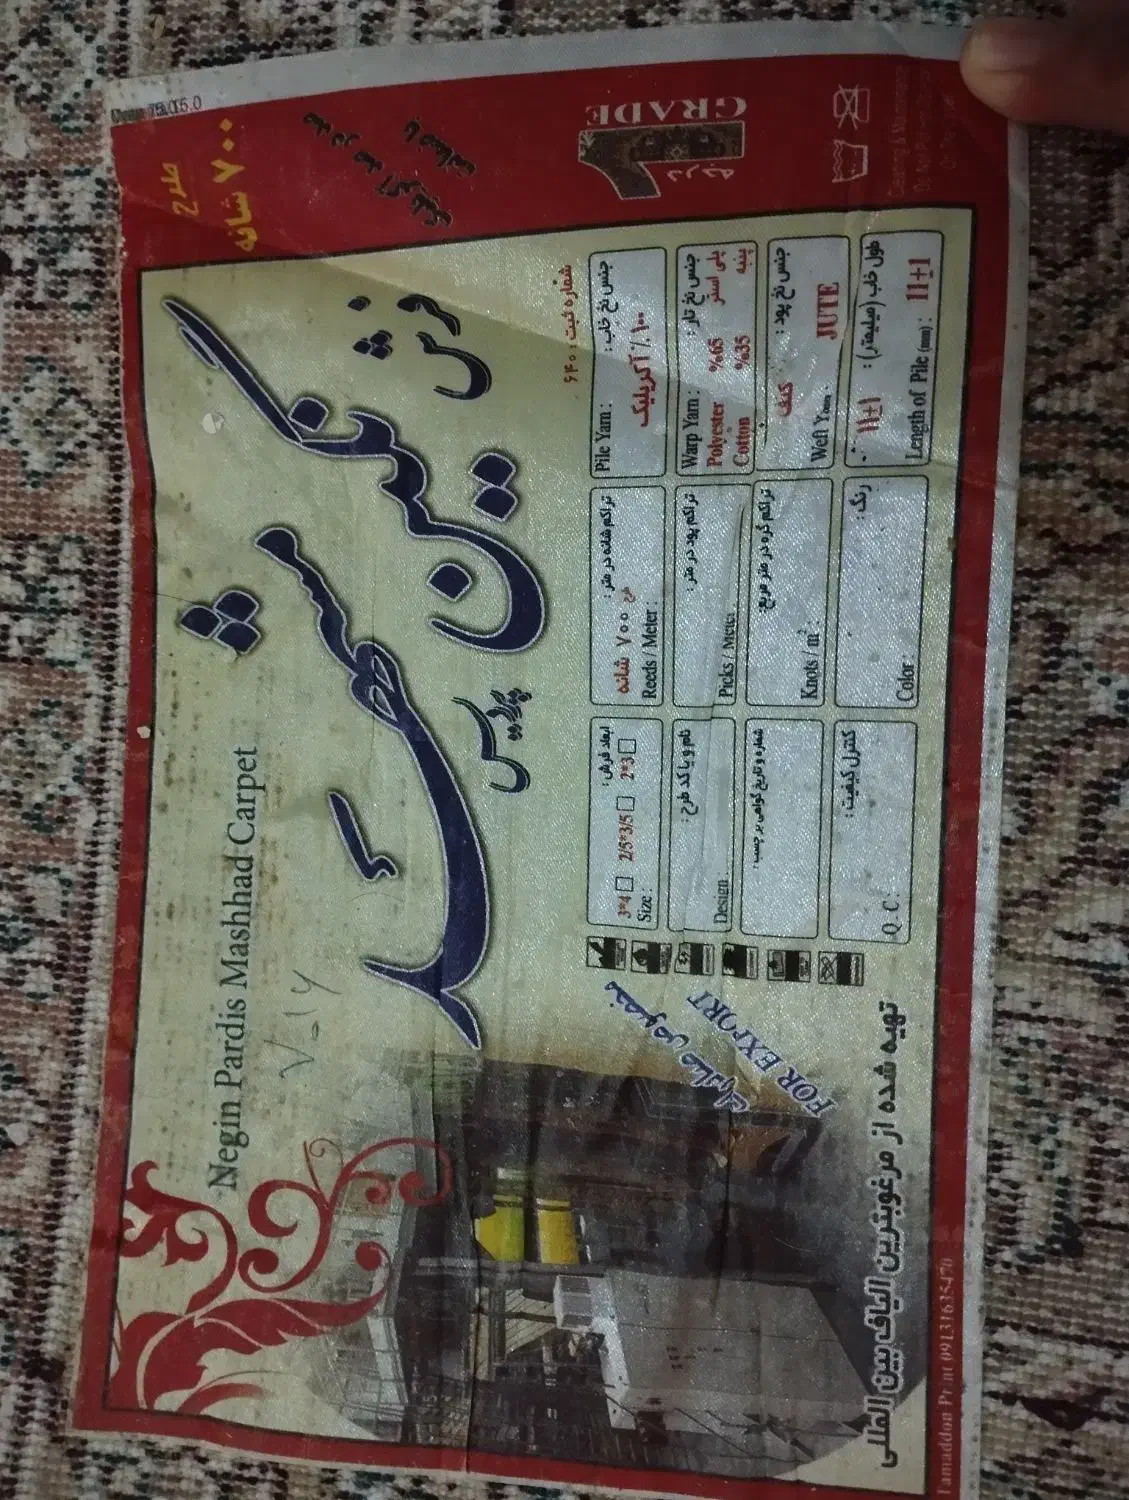 طرح
۷۰۰ شانه
صد در صد آکریلیک
با ضمانت
درجه
1
GRADE
Cleaning & Maintenance
فرش
نگین
پردیس
مشهد
Negin Pardis Mashhad Carpet
شماره ثبت ۶۴۰۰
جنس نخ خاب :
۱۰۰٪ آکریلیک
Pile Yarn :
جنس نخ تار :
پلی استر
پنبه
%65
%35
Warp Yarn :
Polyester
Cotton
جنس نخ پود :
کنف
JUTE
Weft Yarn :
طول خاب (میلیمتر) :
11±1
Length of Pile (mm) : 11±1
تراکم شانه در متر :
طرح ۷۰۰ شانه
Reeds / Meter :
تراکم پود در متر :
Picks / Meter
تراکم گره در متر مربع :
Knots / m² :
رنگ :
Color :
ابعاد فرش :
3*4 2/5*3/5 2*3
Size :
نام و یا کد طرح :
Design :
شماره و تاریخ گواهی برچسب :
کنترل کیفیت :
Q . C :
مخصوص صادرات
FOR EXPORT
تهیه شده از مرغوبترین الیاف بین المللی
Tamaddon Print 09131635470